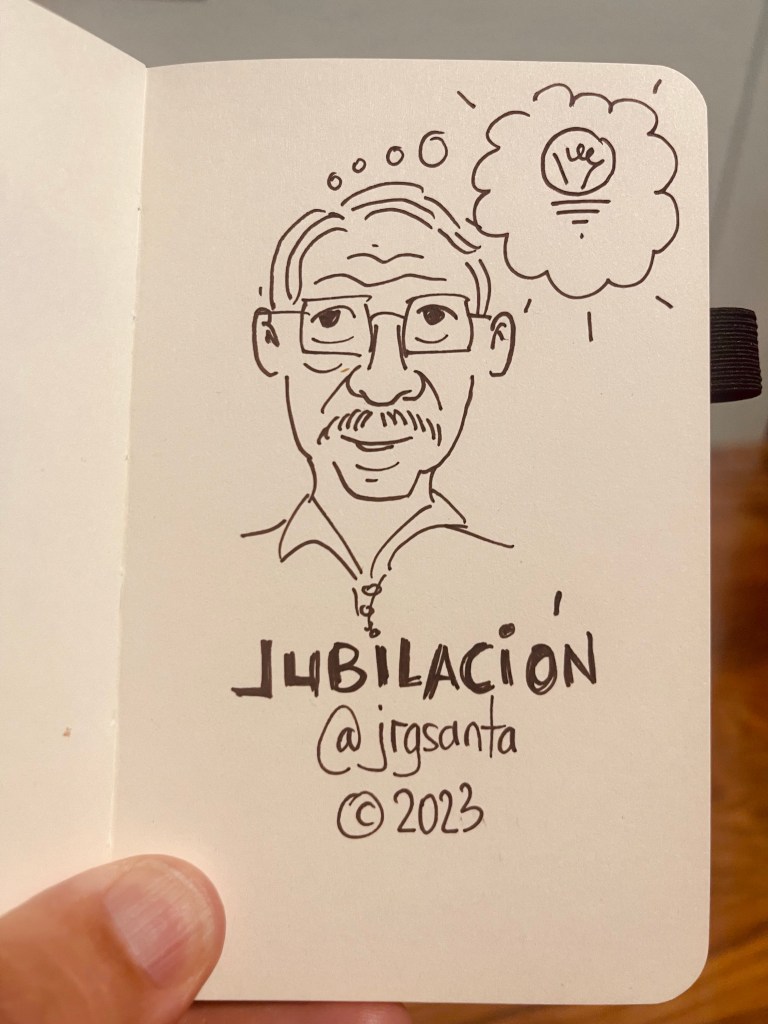 JUBILACIÓN
@jrgsanta
© 2023